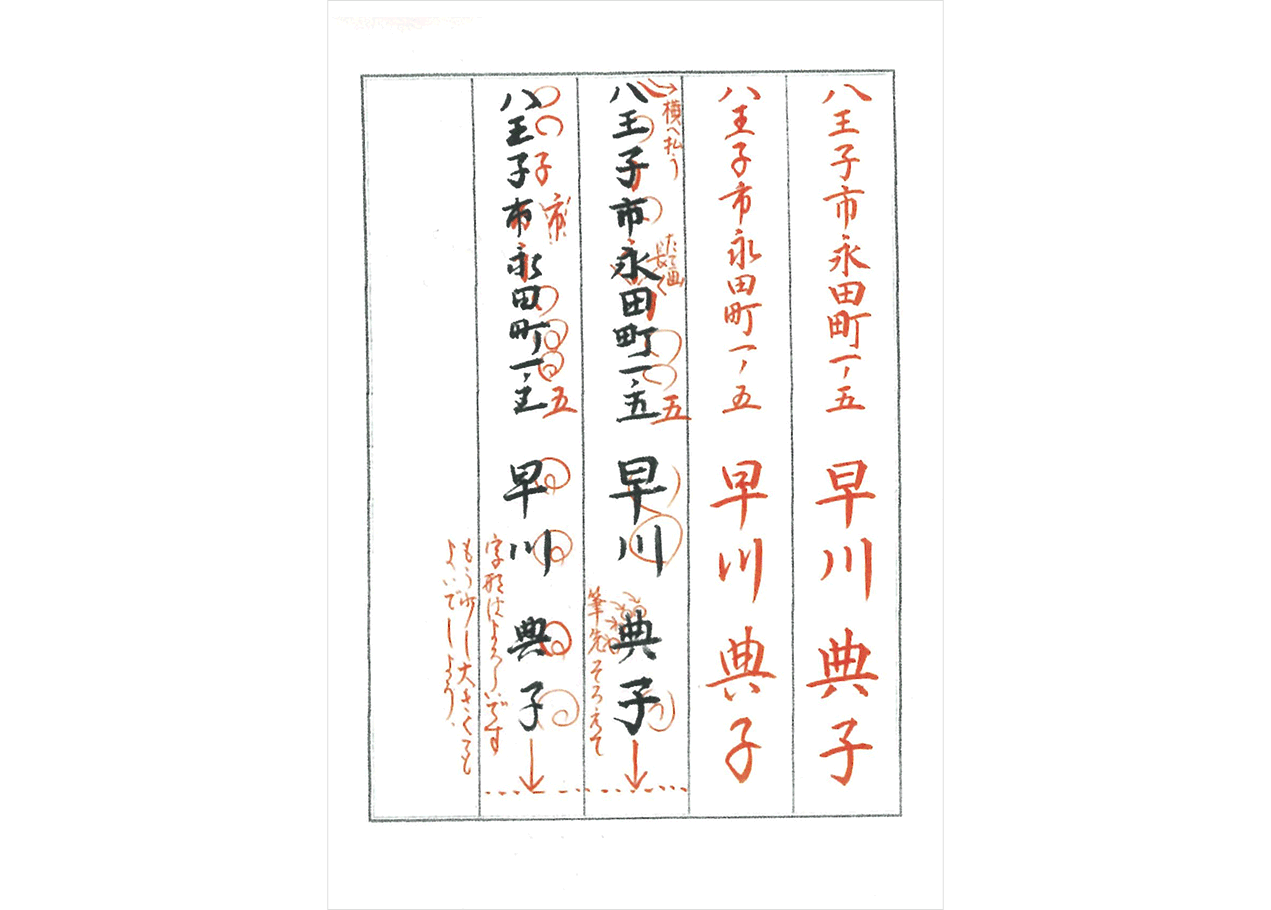 八王子市永田町一ノ五 早川典子
八王子市永田町一ノ五 早川典子
八王子市永田町一、五 早川典子
横へ払う
たて画
長く
五
筆先そろえて
八王子市永田町一、五 早川典子
子
市
五
字形はよろしいです
もう少し大きくても
よいでしょう。